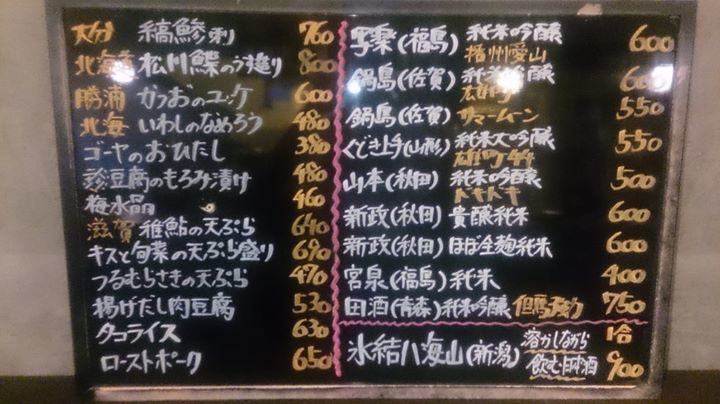 大分 縞鯵刺 760
北海道 松川鰈のうす造り 800
勝浦 かつおのユッケ 600
北海 いわしのなめろう 480
ゴーヤのおひたし 380
豆腐のもろみ漬け 480
梅水晶 460
滋賀 稚鮎の天ぷら 640
キスと旬菜の天ぷら盛り 690
つるむらさきの天ぷら 470
揚げだし肉豆腐 530
タコライス 630
ローストポーク 650
写楽(福島) 純米吟醸 播州愛山 600
鍋島(佐賀) 純米吟醸 雄町 600
鍋島(佐賀) サマームーン 550
くどき上手(山形) 純米大吟醸 雄町44 550
山本(秋田) 純米吟醸 ドキドキ 500
新政(秋田) 貴醸純米 600
新政(秋田) ほぼ全麹純米 600
宮泉(福島) 純米 400
田酒(青森) 純米吟醸 但馬強力 750
氷結八海山(新潟) 溶かしながら飲む日本酒 1合 900